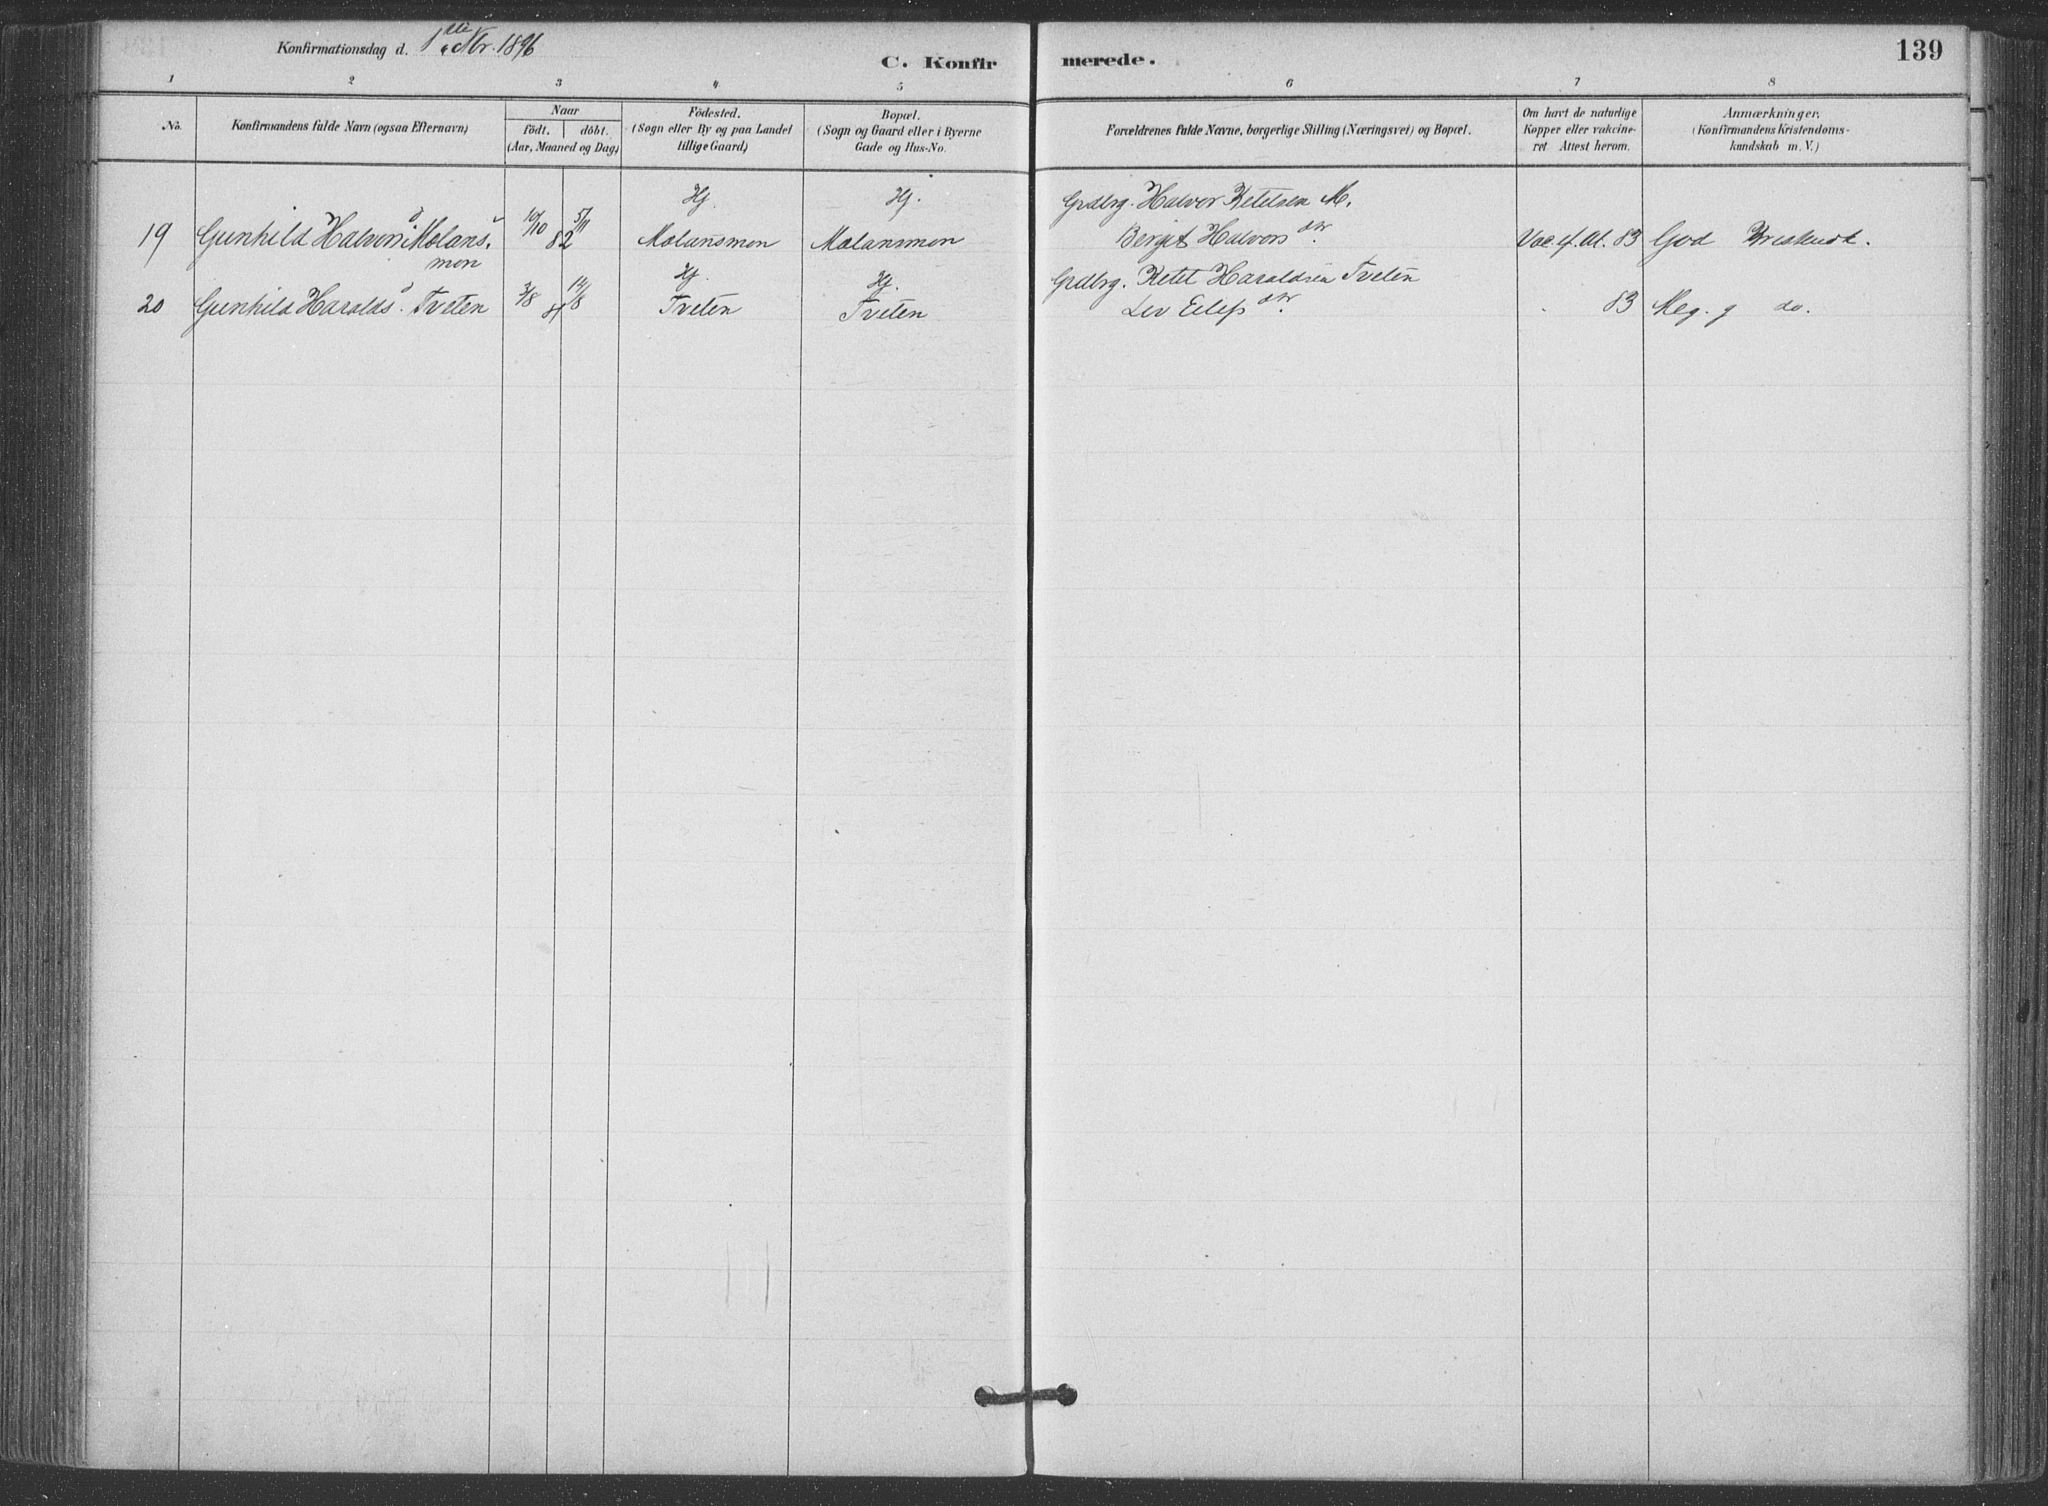 Konfirmationsdag d. 1ste Nbr. 1896
C. Konfirmerede.
139
1 2 3 4 5 6 7 8
No.
Konfirmandens fulde Navn (ogsaa Efternavn)
Naar
födt. döbt.
(Aar, Maaned og Dag)
Födested.
(Sogn eller By og paa Landet
tillige Gaard)
Bopæl.
(Sogn og Gaard eller i Byerne
Gade og Hus-No.
Forældrenes fulde Navne, borgerlige Stilling (Næringsvei) og Bopæl.
Om havt de naturlige
Kopper eller vakcine-
ret Attest herom.
Anmærkninger.
(Konfirmandens Kristendoms-
kundskab m. V.)
Hj. Hj. Grdbrg. Halvor Ketelsen M.
19 Gunhild Halvors d Molans- 10/10 82 5/11 Molansmon Molansmon Bergit Halvors dtr. Vac. ef. At. 83 God Kriskudsk.
mon
Hj. Hj. Grdbrg. Ketel Haraldsen Tveten
20 Gunhild Haralds d. Tveten 3/8 14/8 Tveten Tveten Liv Eilefs dtr. 83 Meg. g do.